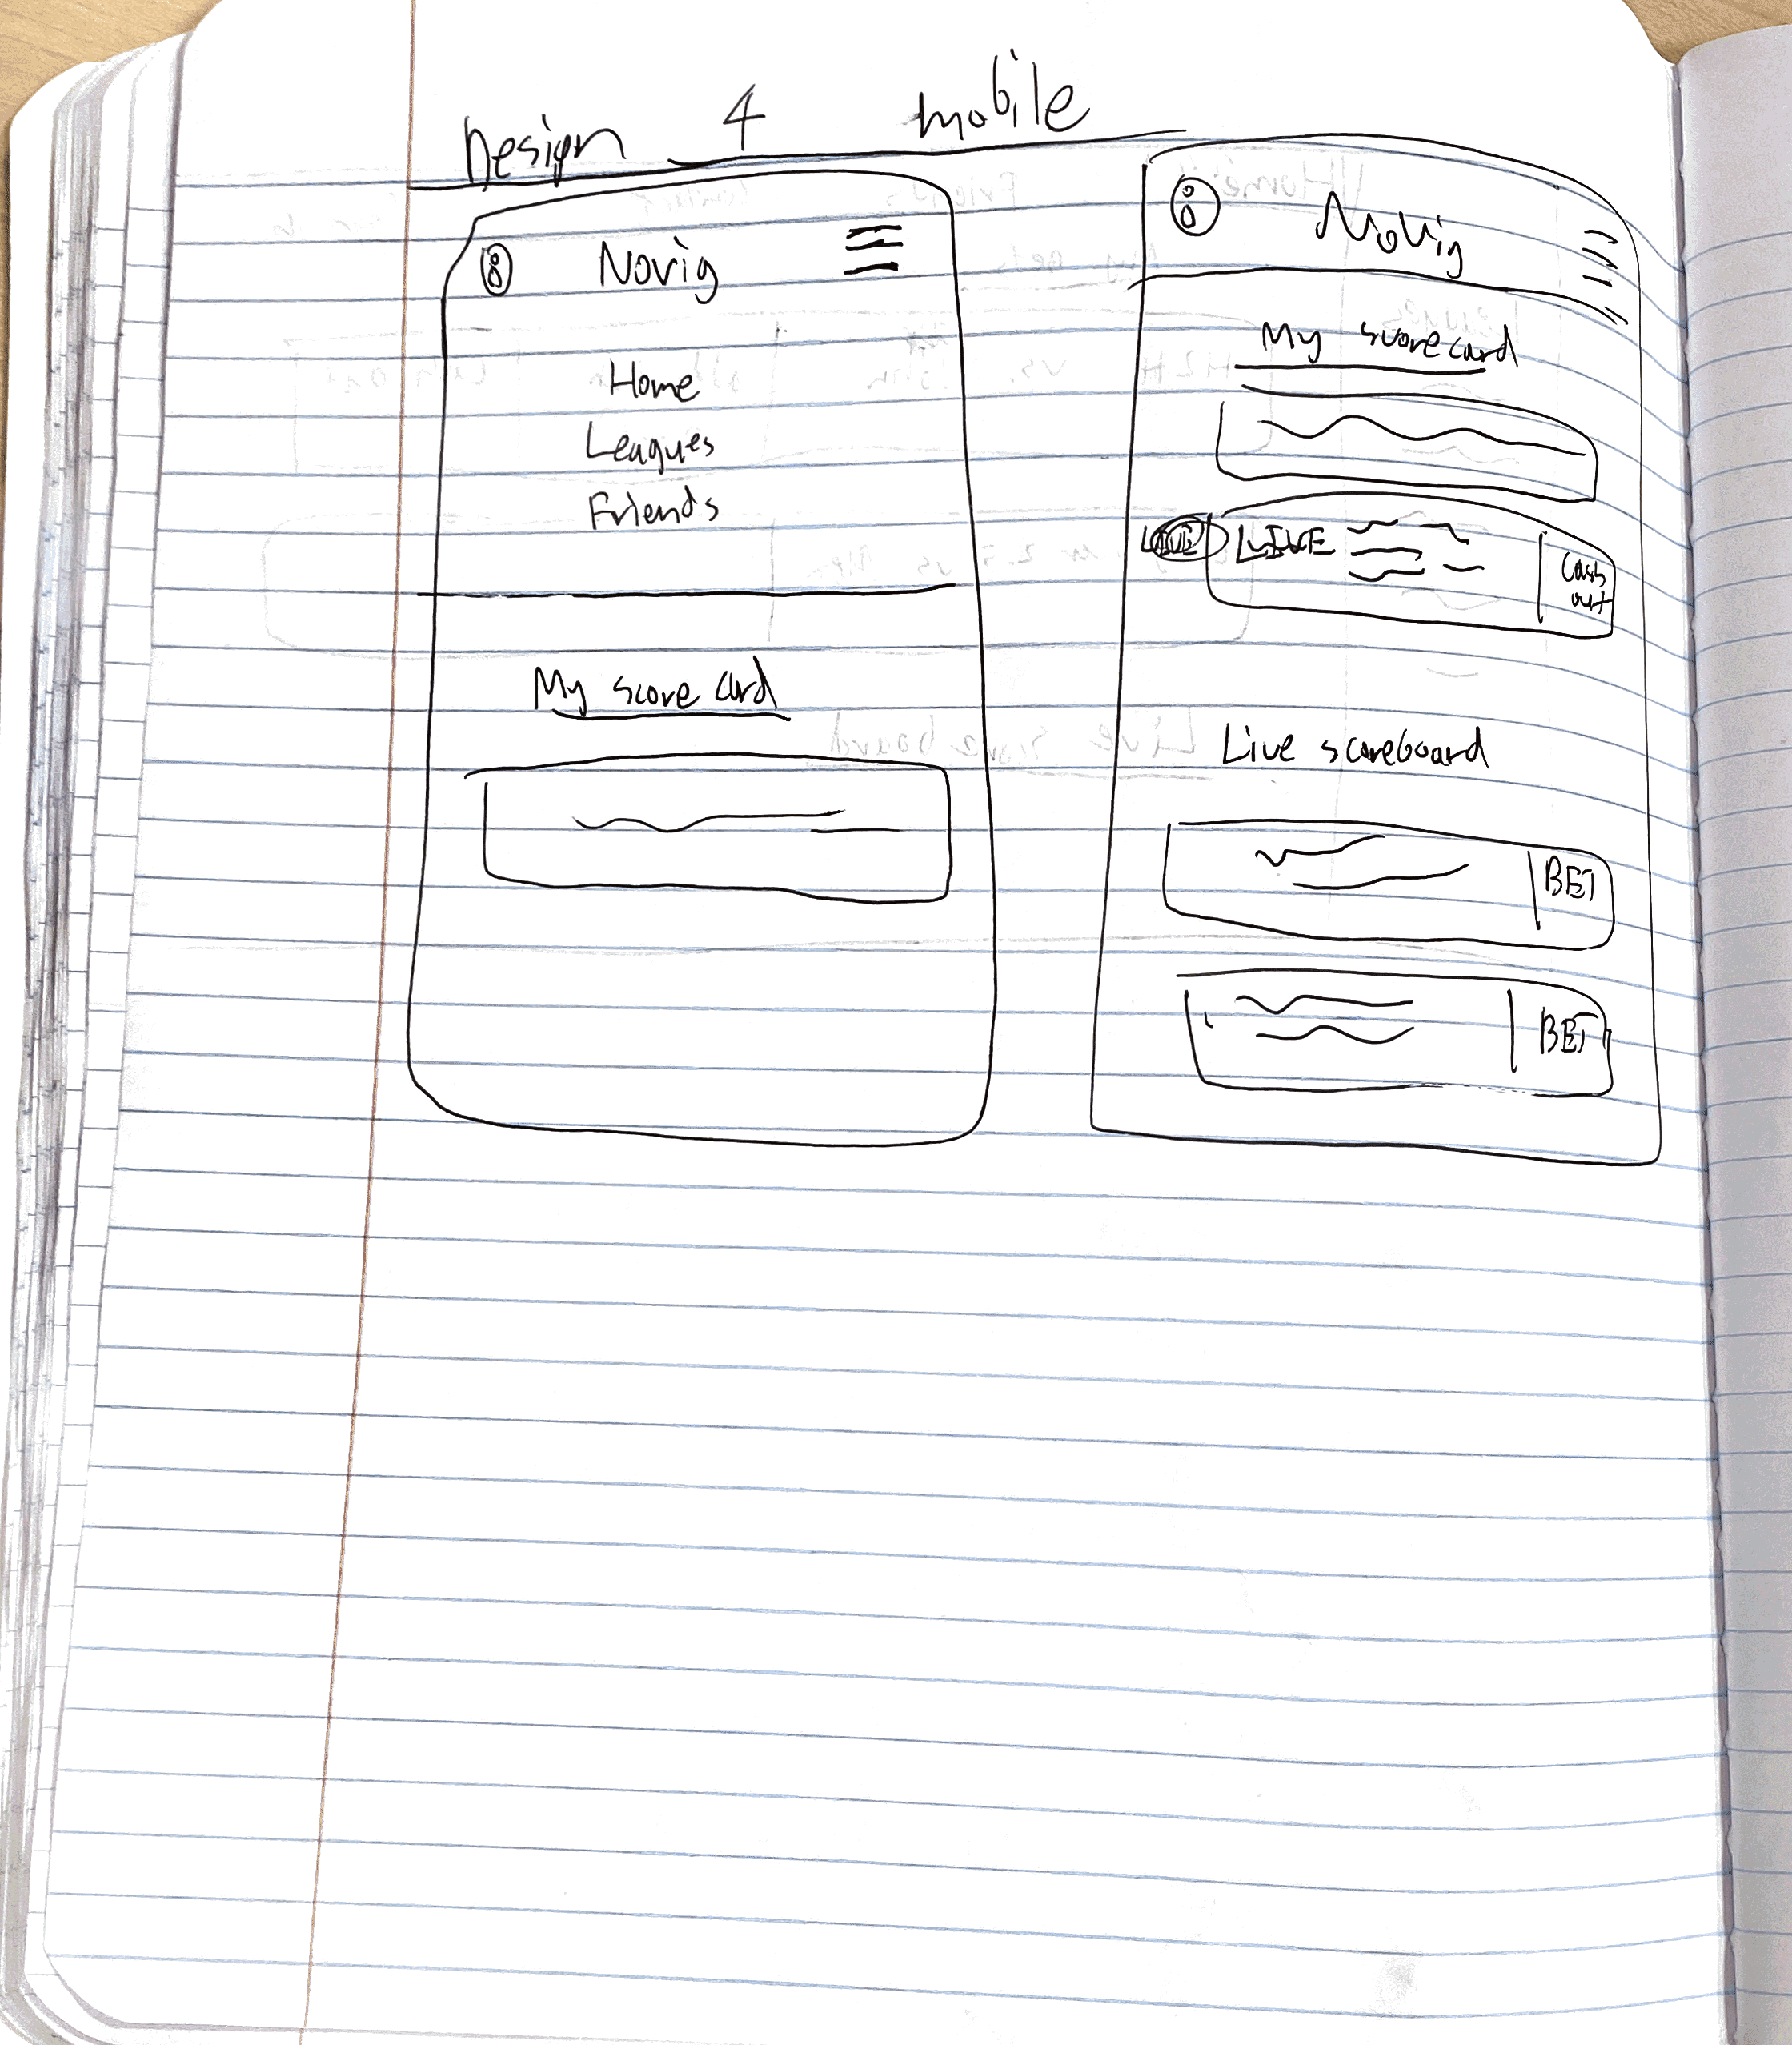 Design 4 mobile
Novig
Home
Leagues
Friends
My score card
Novig
My scorecard
LIVE
Cash
out
Live scoreboard
BET
BET